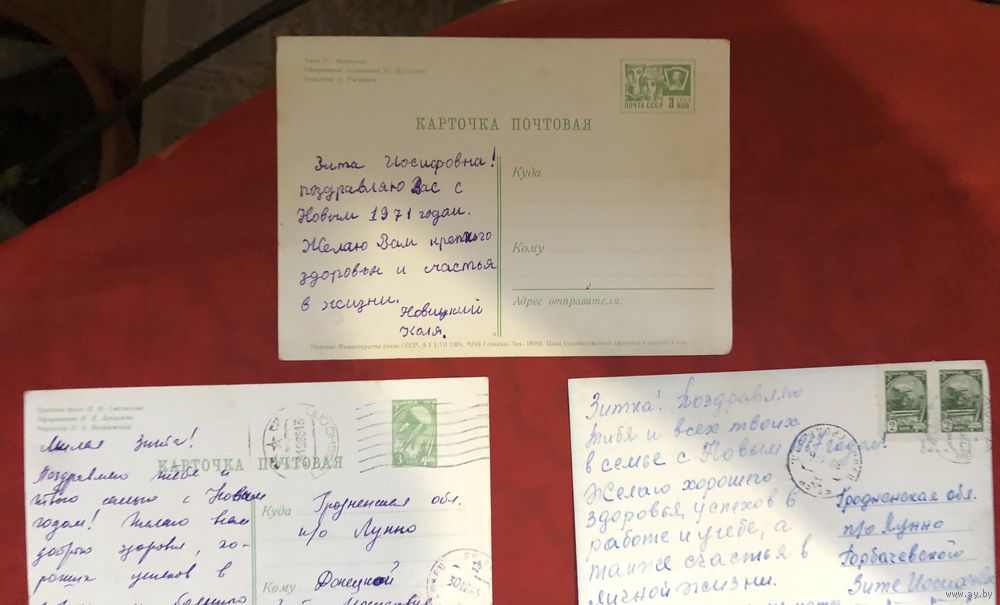 КАРТОЧКА ПОЧТОВАЯ
ПОЧТА СССР 3 КОП.
Зита Иосифовна!
поздравляю Вас с
Новым 1971 годом.
Желаю Вам крепкого
здоровья и счастья
в жизни.
Новицкий
Коля.
Куда
Кому
Адрес отправителя:
Милая Зита!
КАРТОЧКА ПОЧТОВАЯ
Поздравляю тебя и
твою семью с Новым
годом! Желаю вам
доброго здоровья, хо-
роших успехов в
Куда Гродненская обл.
п/о Лунно
Кому Донецкой
Зитка! Поздравляю
тибя и всех твоих
в семье с Новым годом!
Желаю хорошего
здоровья, успехов в
работе и учебе, а
также счастья в
личной жизни.
Гродненская обл.
п/о Лунно
Горбачевского
Зите Иосифовне
www.ay.by